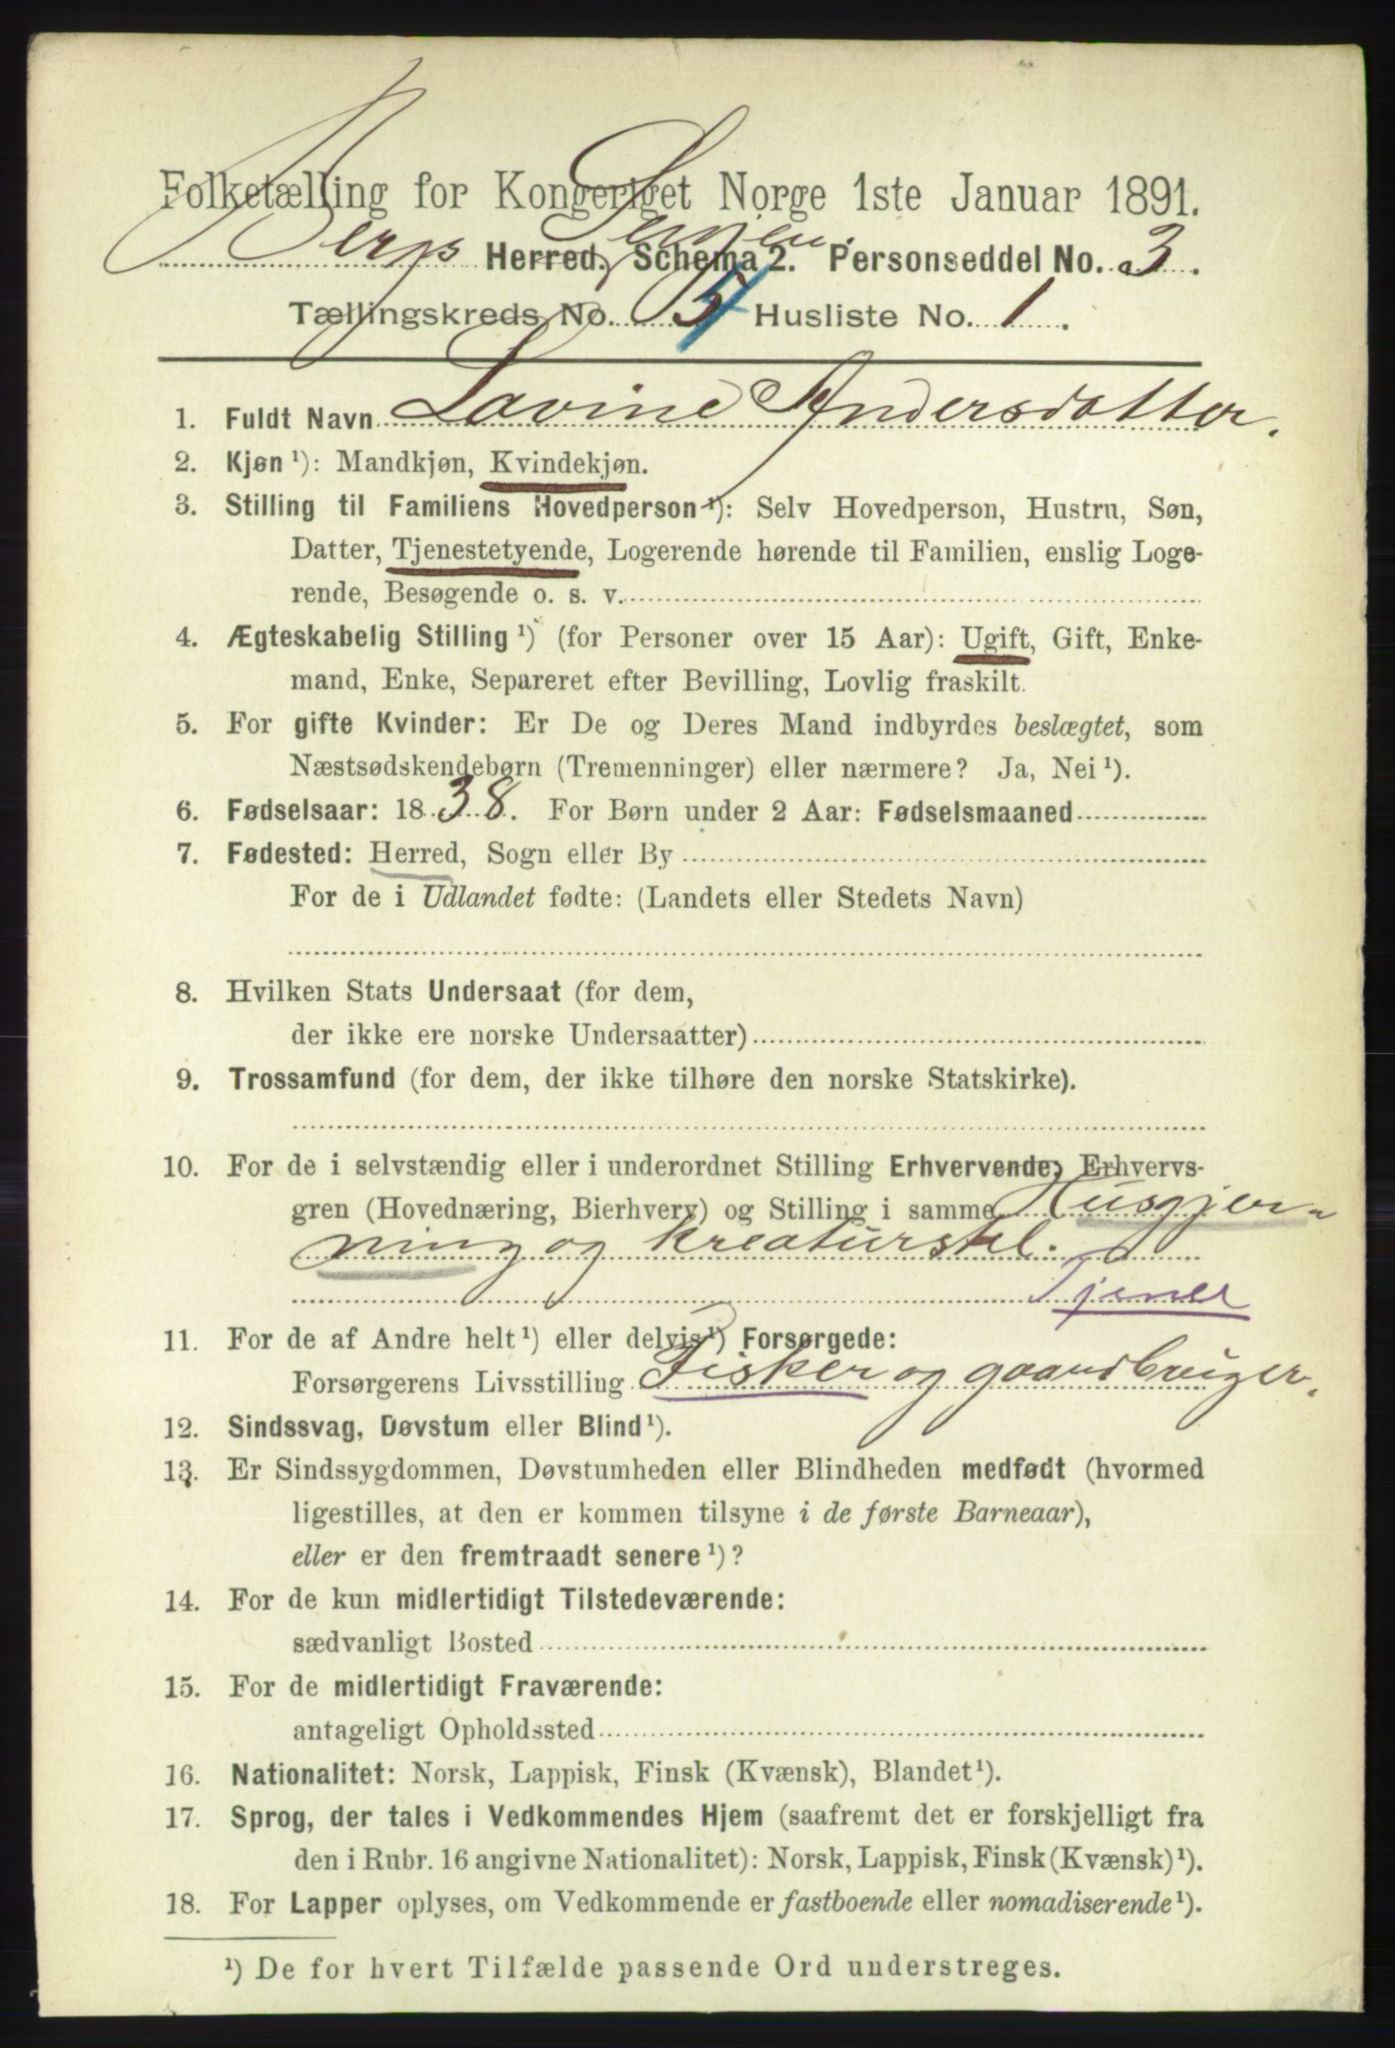 Folketælling for Kongeriget Norge 1ste Januar 1891.
Berg Senjen.
Herred. Schema 2. Personseddel No. 3.
Tællingskreds No. Husliste No. 1.
1. Fuldt Navn Lovine Andersdatter.
2. Kjøn ¹): Mandkjøn, Kvindekjøn.
3. Stilling til Familiens Hovedperson ¹): Selv Hovedperson, Hustru, Søn,
Datter, Tjenestetyende, Logerende hørende til Familien, enslig Loge-
rende, Besøgende o. s. v.
4. Ægteskabelig Stilling ¹) (for Personer over 15 Aar): Ugift, Gift, Enke-
mand, Enke, Separeret efter Bevilling, Lovlig fraskilt.
5. For gifte Kvinder: Er De og Deres Mand indbyrdes beslægtet, som
Næstsødskendebørn (Tremenninger) eller nærmere? Ja, Nei ¹).
6. Fødselsaar: 1838. For Børn under 2 Aar: Fødselsmaaned
7. Fødested: Herred, Sogn eller By
For de i Udlandet fødte: (Landets eller Stedets Navn)
8. Hvilken Stats Undersaat (for dem,
der ikke ere norske Undersaatter)
9. Trossamfund (for dem, der ikke tilhøre den norske Statskirke).
10. For de i selvstændig eller i underordnet Stilling Erhvervende, Erhvervs-
gren (Hovednæring, Bierhverv) og Stilling i samme Husgjer-
ning og kreaturstel.
Tjener
11. For de af Andre helt ¹) eller delvis ¹) Forsørgede:
Forsørgerens Livsstilling Fisker og gaardbruger.
12. Sindssvag, Døvstum eller Blind ¹).
13. Er Sindssygdommen, Døvstumheden eller Blindheden medfødt (hvormed
ligestilles, at den er kommen tilsyne i de første Barneaar),
eller er den fremtraadt senere ¹)?
14. For de kun midlertidigt Tilstedeværende:
sædvanligt Bosted
15. For de midlertidigt Fraværende:
antageligt Opholdssted
16. Nationalitet: Norsk, Lappisk, Finsk (Kvænsk), Blandet ¹).
17. Sprog, der tales i Vedkommendes Hjem (saafremt det er forskjelligt fra
den i Rubr. 16 angivne Nationalitet): Norsk, Lappisk, Finsk (Kvænsk) ¹).
18. For Lapper oplyses, om Vedkommende er fastboende eller nomadiserende ¹).
¹) De for hvert Tilfælde passende Ord understreges.